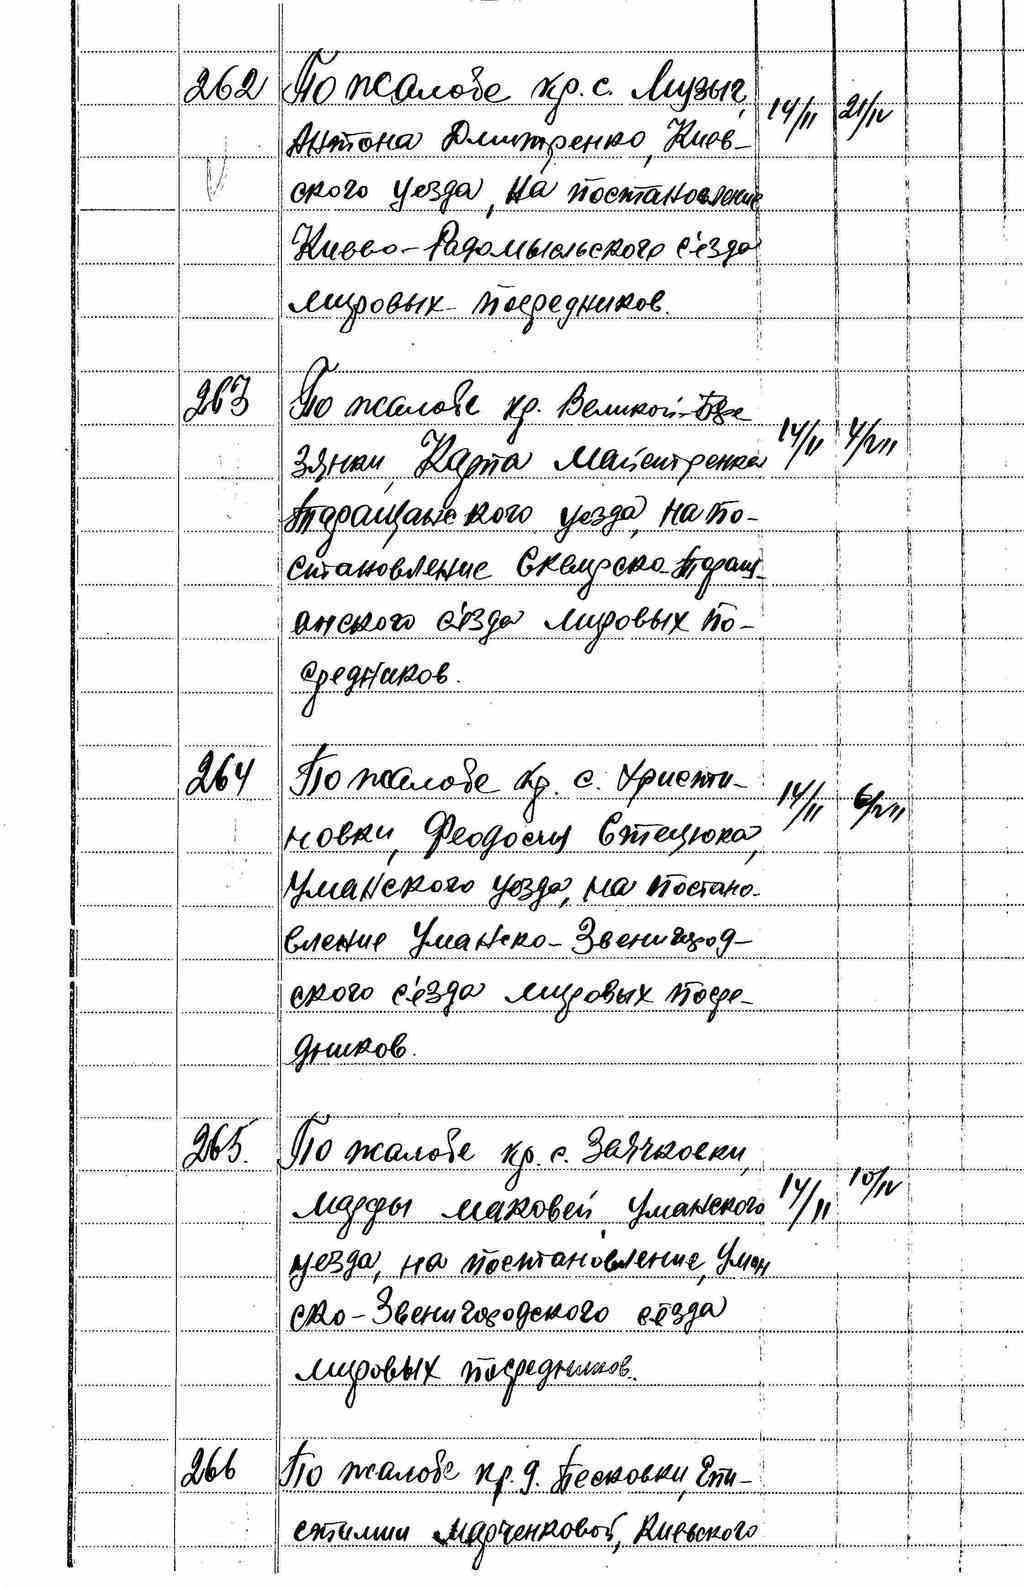 262 По жалобе кр. с. Музыч, 14/II 21/IV
Антона Дмитренко, Киев-
ского уезда, на постановление
Киево-Радомысльского с'езда
мировых посредников.
263 По жалобе кр. Великой-Бере 14/II 4/VII
зянки, Карпа Майстренка
Таращанского уезда, на по-
становление Сквирско-Таращ-
анского с'езда мировых по-
средников.
264 По жалобе кр. с. Христи- 14/II 6/VII
новки, Феодосия Стецюка,
Уманского уезда, на постано-
вление Уманско-Звенигород-
ского с'езда мировых посре-
дников.
265. По жалобе кр. с. Заячковки,
Марфы Маковей, Уманского 14/II 10/IV
уезда, на постановление, Уман
ско-Звенигородского с'езда
мировых посредников.
266 По жалобе кр. д. Песковки, Епи-
стилии Марченковой, Киевского